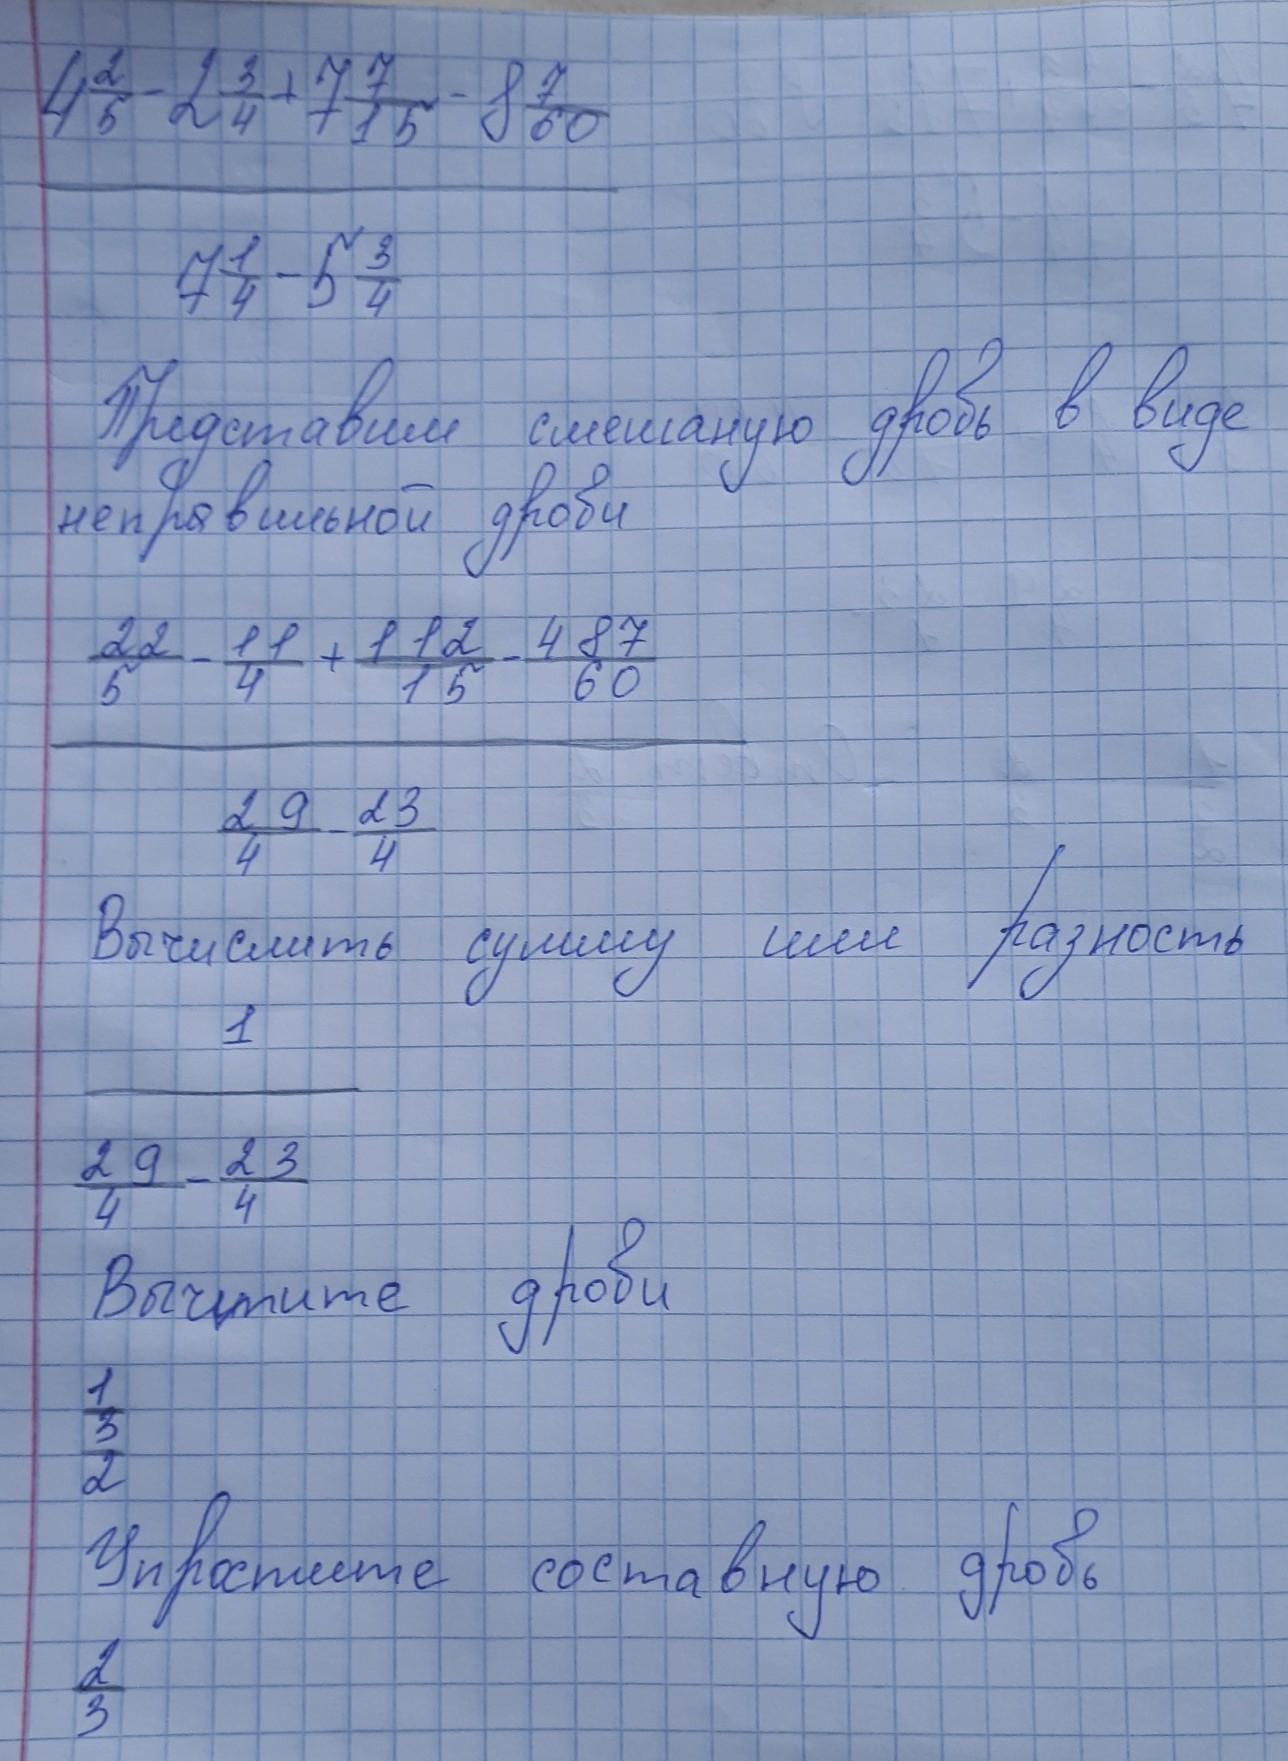 4 2/5 - 2 3/4 + 7 7/15 - 8 7/60
7 1/4 - 5 3/4
Представим смешаную дробь в виде
неправильной дроби
22/5 - 11/4 + 112/15 - 487/60
29/4 - 23/4
Вычислить сумму или разность
1
29/4 - 23/4
Вычтите дроби
1
3
2
Упростите составную дробь
2/3